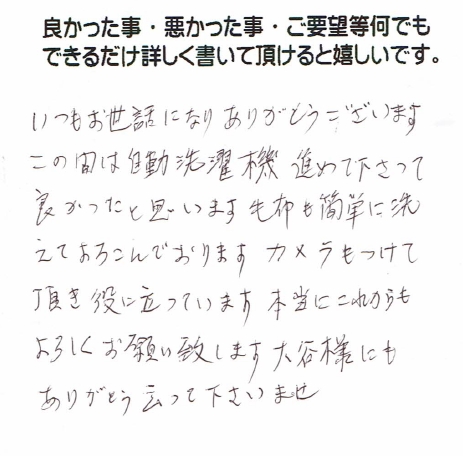 良かった事・悪かった事・ご要望等何でも
できるだけ詳しく書いて頂けると嬉しいです。
いつもお世話になりありがとうございます
この間は自動洗濯機 進めて下さって
良かったと思います 毛布も簡単に洗
えてよろこんでおります カメラもつけて
頂き役に立っています 本当にこれからも
よろしくお願い致します 大谷様にも
ありがとう云って下さいませ